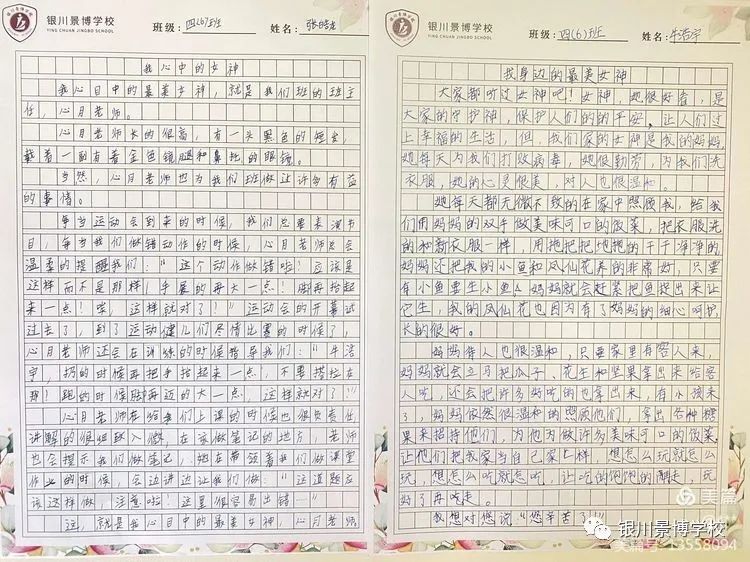 银川景博学校
YING CHUAN JINGBO SCHOOL
班级：四(6)班
姓名：
我心中的女神
我心目中的最美女神，就是我们班的班主
任，心月老师。
心月老师长的很高，有一头黑色的短发，
戴着一副有着金色镜腿和鼻托的眼镜。
当然，心月老师也为我们班做让许多有益
的事情。
每当运动会到来的时候，我们总要表演节
目，每当我们做错动作的时候，心月老师总会
温柔的提醒我们：“这个动作做错啦！应该是
这样而不是那样，手星的再大一点！脚再抬起
来一点！嗯，这样就对了！”运动会的开幕式
过去了，到了运动健儿们尽情比赛的时候了，
心月老师还会在训练的时候指导我们：“牛浩
宇，扔的时候再把手抬起来一点，不要摆拉在
那！跑的时候脚再迈的大一点，这样就对了！”
心月老师在给我们上课的时候也很负责任
讲解的很细致入微，在家做笔记的地方，老师
也会提示我们做笔记，她在带领着我们做课堂
作业的时候，会边讲边让我们：“这道题应
该这样做，注意啦！这里很容易出错…”
这，就是我心目中的最美女神，心月老师
银川景博学校
YING CHUAN JINGBO SCHOOL
班级：四(6)班
姓名：牛浩宇
我身边的最美女神
大家都听过女神吧！女神，她很好看，是
大家的守护神，保护人们的的平安，让人们过
上幸福的生活，但，我们家的女神是我的妈妈，
她每天为我们打败病毒，她很勤劳，为我们洗
衣服，她的心灵很美，对人也很温和。
她每天都无微不致的在家中照顾我，给我
们用妈妈的双手做美味可口的饭菜，把衣服洗
的和新衣服一样，用拖把把地拖的干干净净的，
妈妈还把我的小鱼和凤仙花养的非常好，只要
有小鱼要生小鱼，妈妈就会赶紧把鱼捞出来让
它生，我的凤仙花也因为有了妈妈的细心呵护，
长的很好。
妈妈待人也很温和，只要家里有客人来，
妈妈就会立马把瓜子、花生和坚果拿出来给客
人吃，还会把许多好吃的也拿出来，有小孩来
了，妈妈依然很温和的照顾他们，拿出各种糖
果来招待他们，为他为做许多美味可口的饭菜，
让他们把我家当自己家一样，想怎么玩就怎么
玩，想怎么吃就怎吃，让吃的饱饱的，玩
好了再吃走。
我想对您说“您辛苦了！”
美篇
银川景博学校
美篇号：13558094